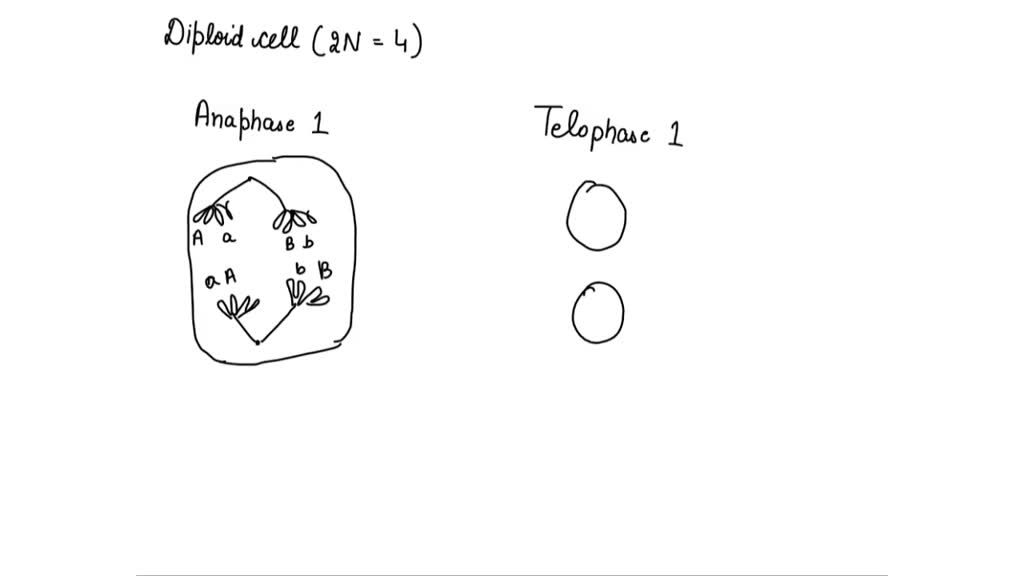 Diploid cell (2N = 4)
Anaphase 1
Telophase 1
A a
B b
a A
b B